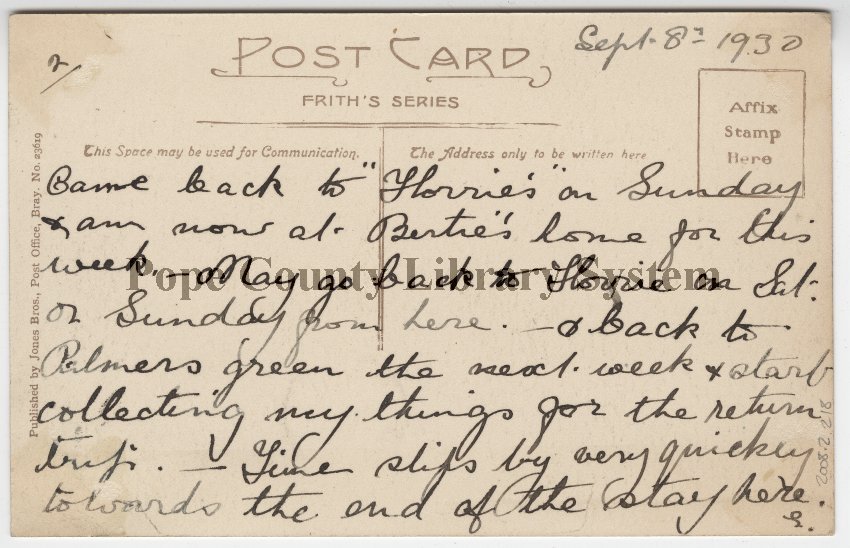 2/
Sept. 8th 1930
POST CARD
FRITH'S SERIES
Affix
Stamp
Here
This Space may be used for Communication.
The Address only to be written here
Came back to "Florrie's" on Sunday
& am now at Bertie's home for this
week. — May go back to Florrie on Sat.
or Sunday from here. — & back to
Palmers green the next week & start
collecting my things for the return
trip. — Time slips by very quickly
towards the end of the stay here.
Pope County Library System
Published by Jones Bros., Post Office, Bray. No. 23619